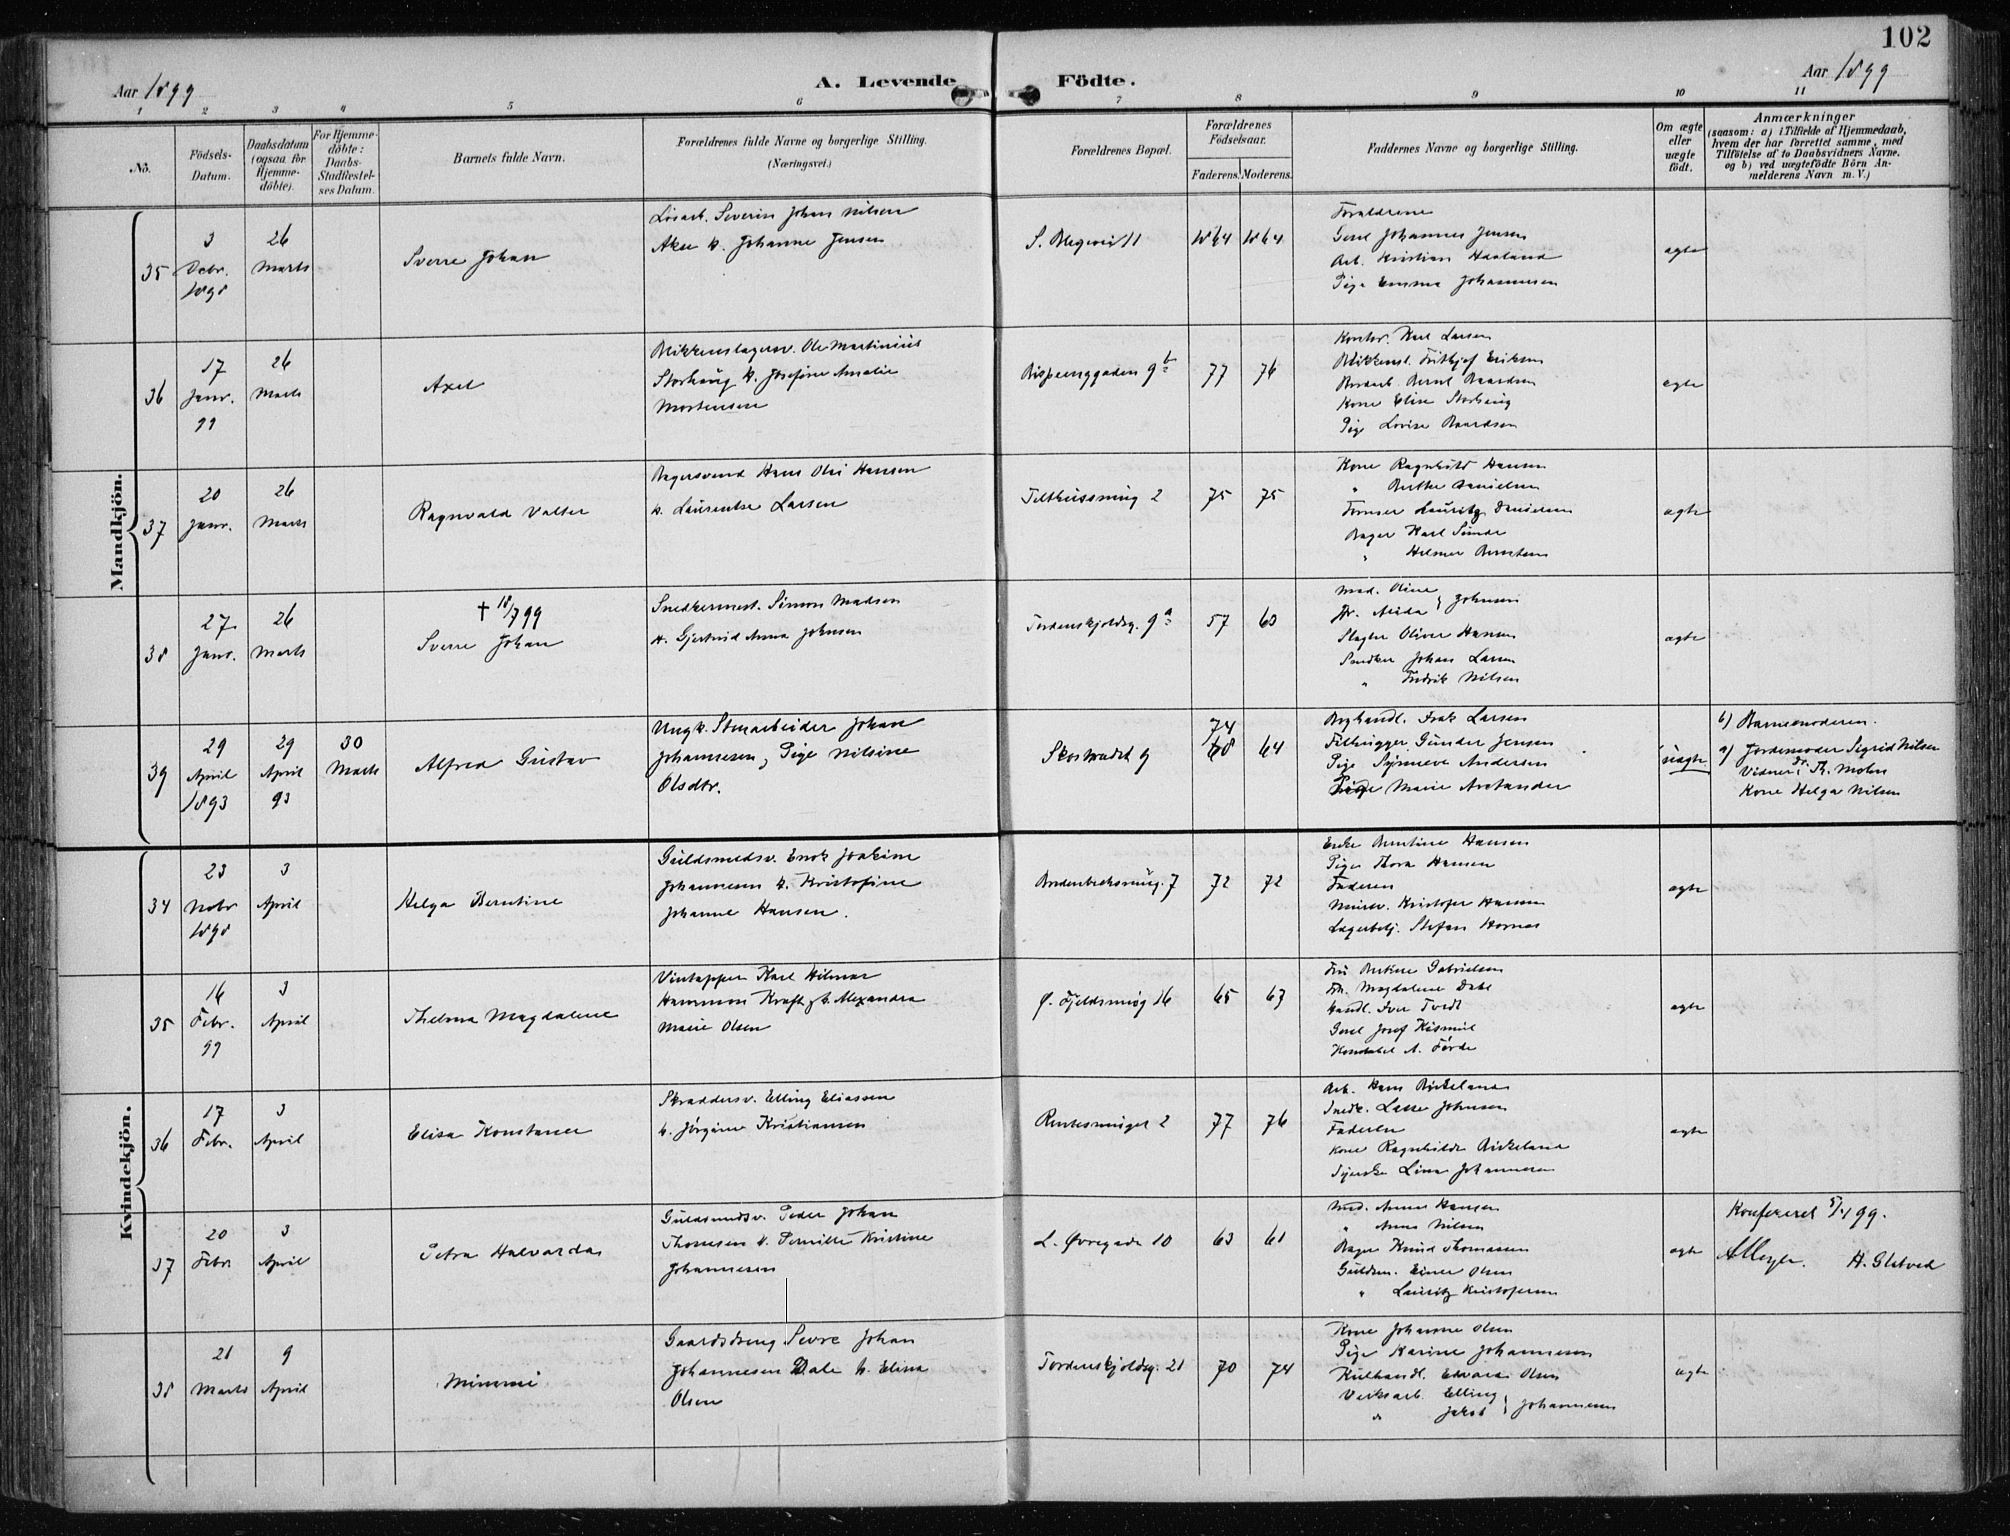 102
Aar 1899
A. Levende
Födte.
Aar 1899
1 2 3 4 5 6 7 8 9 10 11
No.
Födsels-Datum.
Daabsdatum (ogsaa for Hjemme-döbte).
For Hjemme-döbte: Daabs-Stadfæstel-ses Datum.
Barnets fulde Navn.
Forældrenes fulde Navne og borgerlige Stilling.
(Næringsvei.)
Forældrenes Bopæl.
Forældrenes Födselsaar.
Faderens. Moderens.
Faddernes Navne og borgerlige Stilling.
Om ægte eller uægte födt.
Anmærkninger
(saasom: a) i Tilfælde af Hjemmedaab,
hvem der har forrettet samme, med
Tilföielse af to Daabsvidners Navne,
og b) ved uægtefödte Börn An-
melderens Navn m. V.)
Mandkjön.
35
3 Debr. 1898
26 Marts
Sverre Johan
Løsarb. Severin Johan Nilsen
Aker h. Johanne Jensen
S. Blegevei 11
1864 1864
Forældrene
Gesel Johannes Jensen
Arb. Kristian Haaland
Pige Emma Johannesen
ægte
36
17 Janr. 99
26 Marts
Axel
Blikkenslagersv. Ole Martinius
Storhaug h. Josefine Amalie
Mortensen
Bispeenggaden 9 b
77 76
Kontor. Karl Larsen
Blikkensl. Frithjof Eriksen
Bernt Baardsen
Kone Elise Storhaug
Pige Lovise Baardsen
ægte
37
20 Janr.
26 Marts
Ragnvald Valter
Bagersvend Hans Olai Hansen
h. Laurentse Larsen
Telthussmug 2
75 75
Kone Ragnhild Hansen
" Berthe Danielsen
Former Lauritz Danielsen
Bager Karl Sunde
" Hilmer Berntsen
ægte
38
27 Janr.
26 Marts
† 18/7 99
Sverre Johan
Snedkermest. Simon Madsen
h. Gjertrud Anna Johnsen
Tordenskjoldsg. 9 a
57 60
Mad. Oline
Fr. Alida } Johnsen
Slagter Oliver Hansen
Snedker Johan Larsen
" Fredrik Nilsen
ægte
39
29 April 1893
29 April 93
30 Marts
Alfred Gustav
Ungk. Stenarbeider Johan
Johannesen, Pige Nilsine
Olsdtr.
Skostrædet 9
74
68 64
Boghandl. Larsen
Filhugger Gunder Jensen
Pige Synneve Andersen
Pige Marie Arctander
uægte
b) Barnemoderen.
a) Jordemoder Sigrid Nilsen
Vidner: Dr. Th. Mohn
Kone Helga Nilsen
Kvindekjön.
34
23 Nobr 1898
3 April
Helga Berntine
Guldsmedsv. Enok Joakim
Johannesen h. Kristofine
Johanne Hansen.
Bredenbecksmug. 7
72 72
Enke Berntine Hansen
Pige Thora Hansen
Faderen
Murer. Kristofer Hansen
Lagerbetj. Stefan Hornes
ægte
35
16 Febr. 99
3 April
Thelma Magdalene
Vintapper Karl Hilmar
Hammon Kraft, h. Alexandra
Marie Olsen
Ø. Fjeldsmug 16
65 67
Fru Gabrielsen
Frk. Magdalene Dahl
Handl. Iver Tvedt
Gesel Josef
Konstabel A. Førde
ægte
36
17 Febr.
3 April
Elisa Konstanse
Skræddersv. Elling Eliassen
h. Jørgine Kristiansen
Rentesmuget 2
77 76
Arb. Hans Birkeland
Snedk. Lasse Johnsen
Faderen
Kone Ragnhilde Birkeland
Syerske Lina Johannesen
ægte
37
20 Febr
3 April
Petra Halvarda
Guldsmedsv. Peder Johan
Thomesen h. Pernille Kristine
Johannesen
L. Øvregade 10
63 61
Mad. Anna Hansen
" Anna Nilsen
Bager Knud Thomassen
Guldsm. Einer Olsen
" Lauritz Kristofersen
ægte
Konfereret 5/4 99.
H. Glatved
38
21 Marts
9 April
Mimmi
Gaardsdreng Sevre Johan
Johannesen Dale h. Elina
Olsen
Tordenskjoldsg. 21
70 74
Kone Johanne Olsen
Pige Karine Johannesen
Kulhandl. Edvard Olsen
Verksarb. Elling
" Jakob } Johannesen
ægte